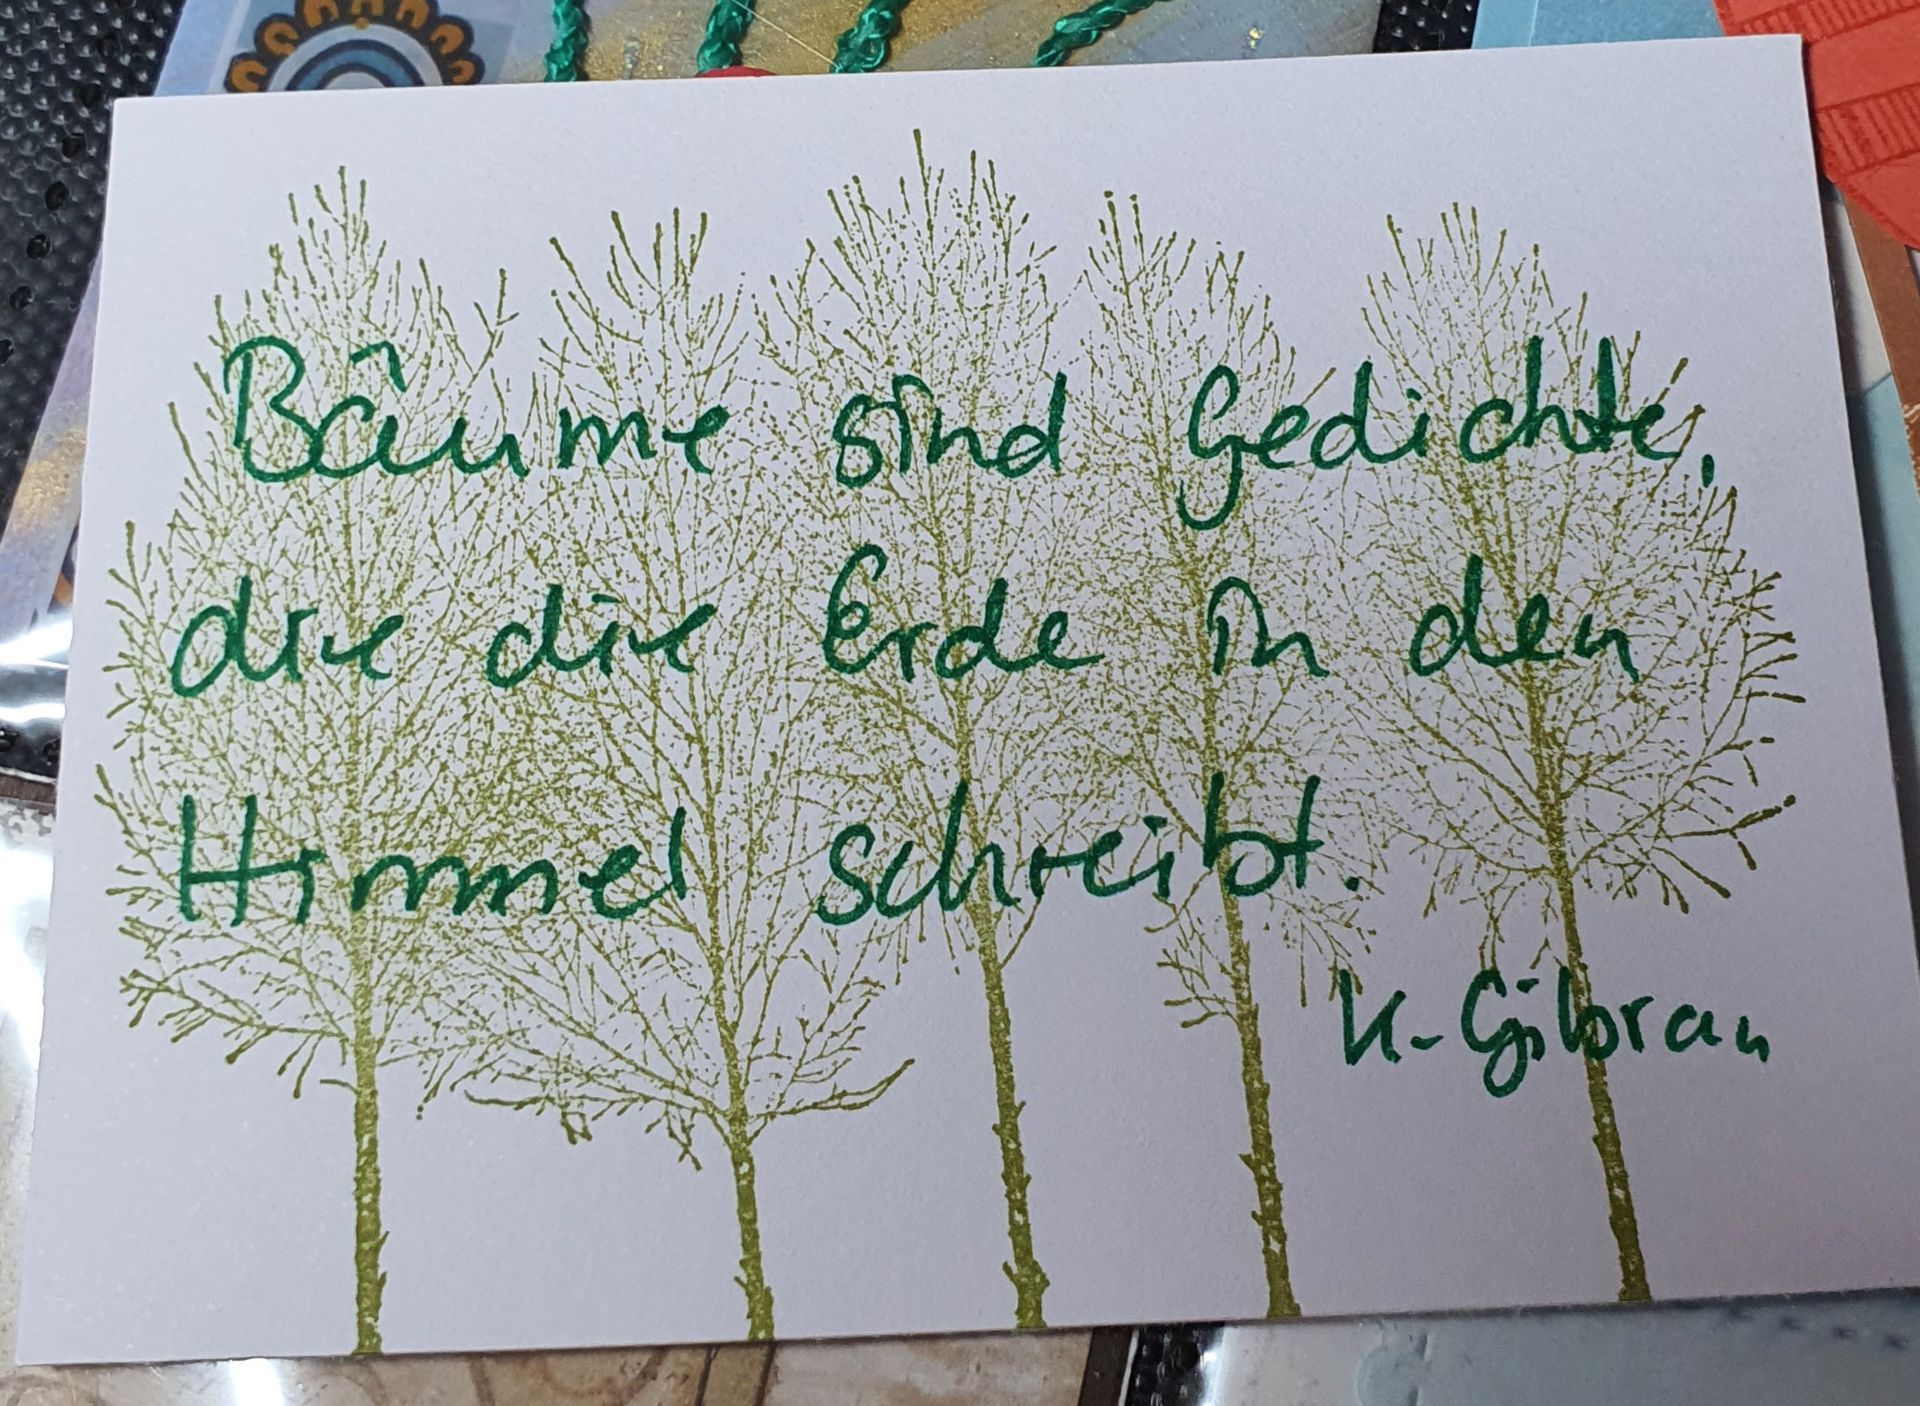 Bäume sind Gedichte,
die die Erde in den
Himmel schreibt.
K. Gibran